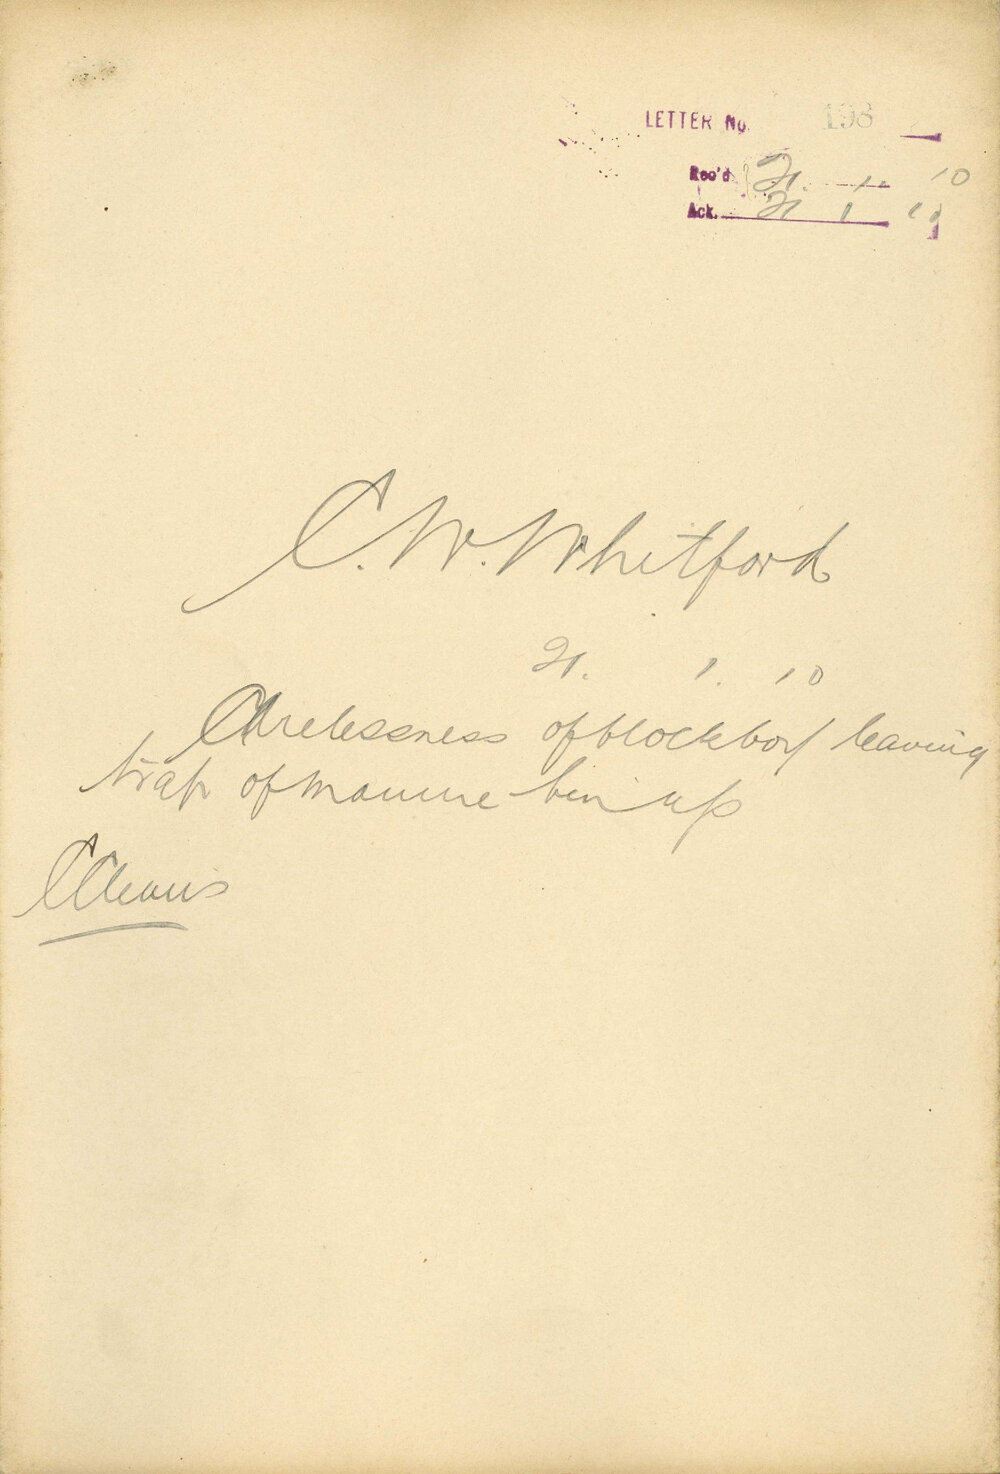 LETTER No. 198
Rec'd 21. 1. 10
Ack. 21 1 10
C. W. Whitford
21. 1. 10
Carelessness of blockboy leaving
trap of manure bin up